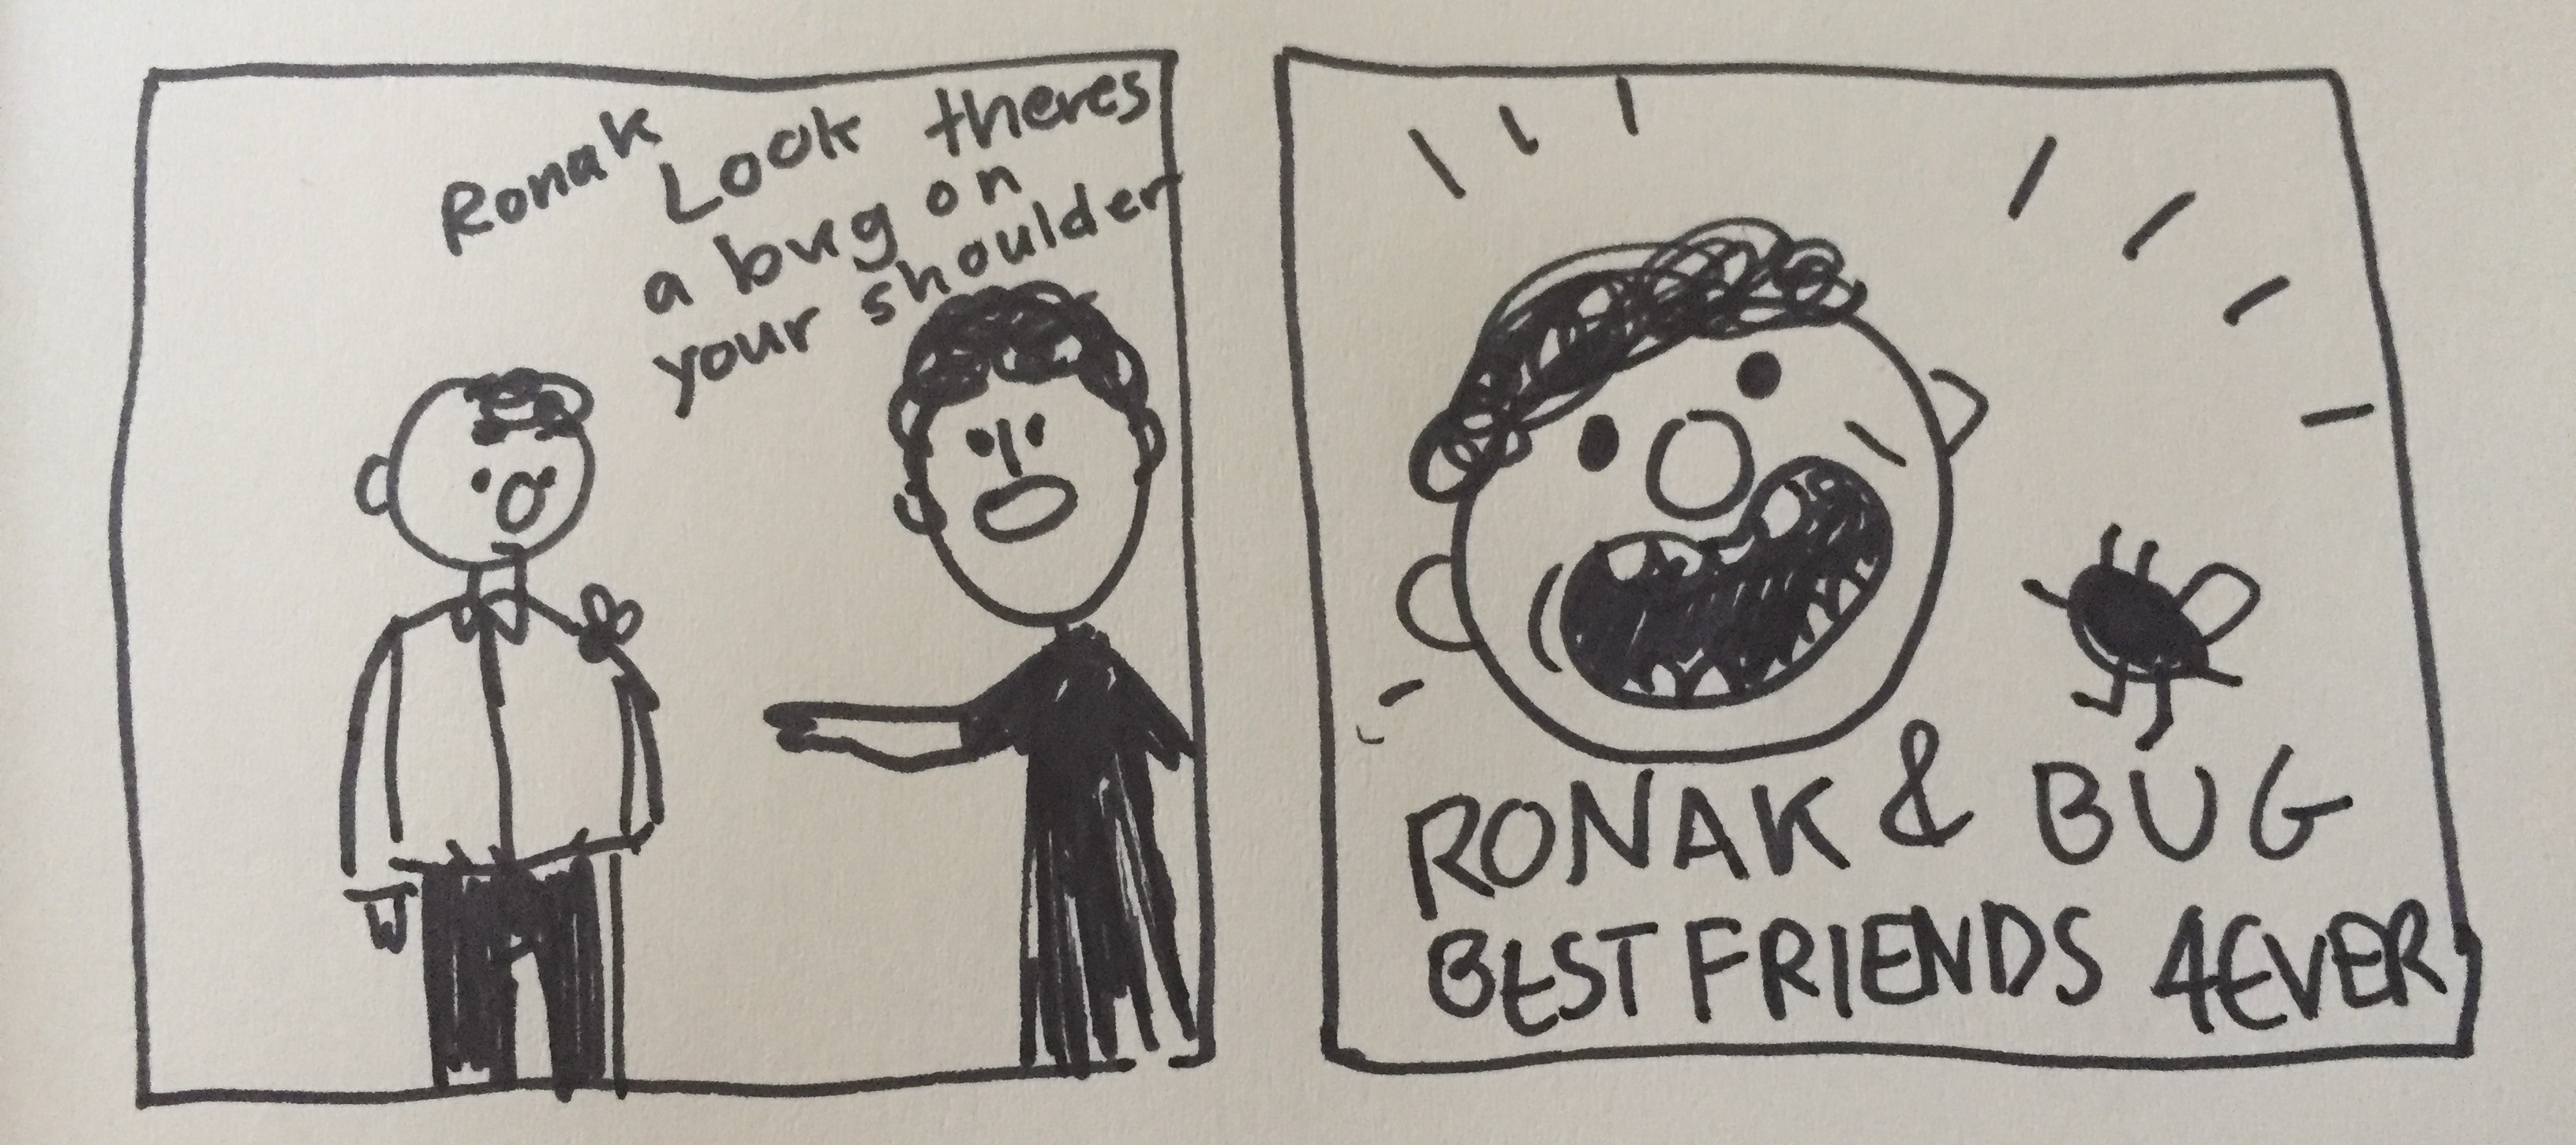 Ronak Look theres
a bug on
your shoulder
RONAK & BUG
BEST FRIENDS 4EVER